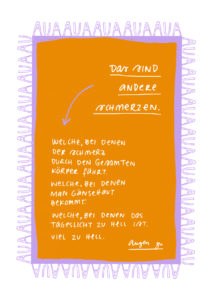 DAS SIND
ANDERE
SCHMERZEN.
WELCHE, BEI DENEN
DER SCHMERZ
DURCH DEN GESAMTEN
KÖRPER FÄHRT.
WELCHE, BEI DENEN
MAN GÄNSEHAUT
BEKOMMT.
WELCHE, BEI DENEN DAS
TAGESLICHT ZU HELL IST.
VIEL ZU HELL.